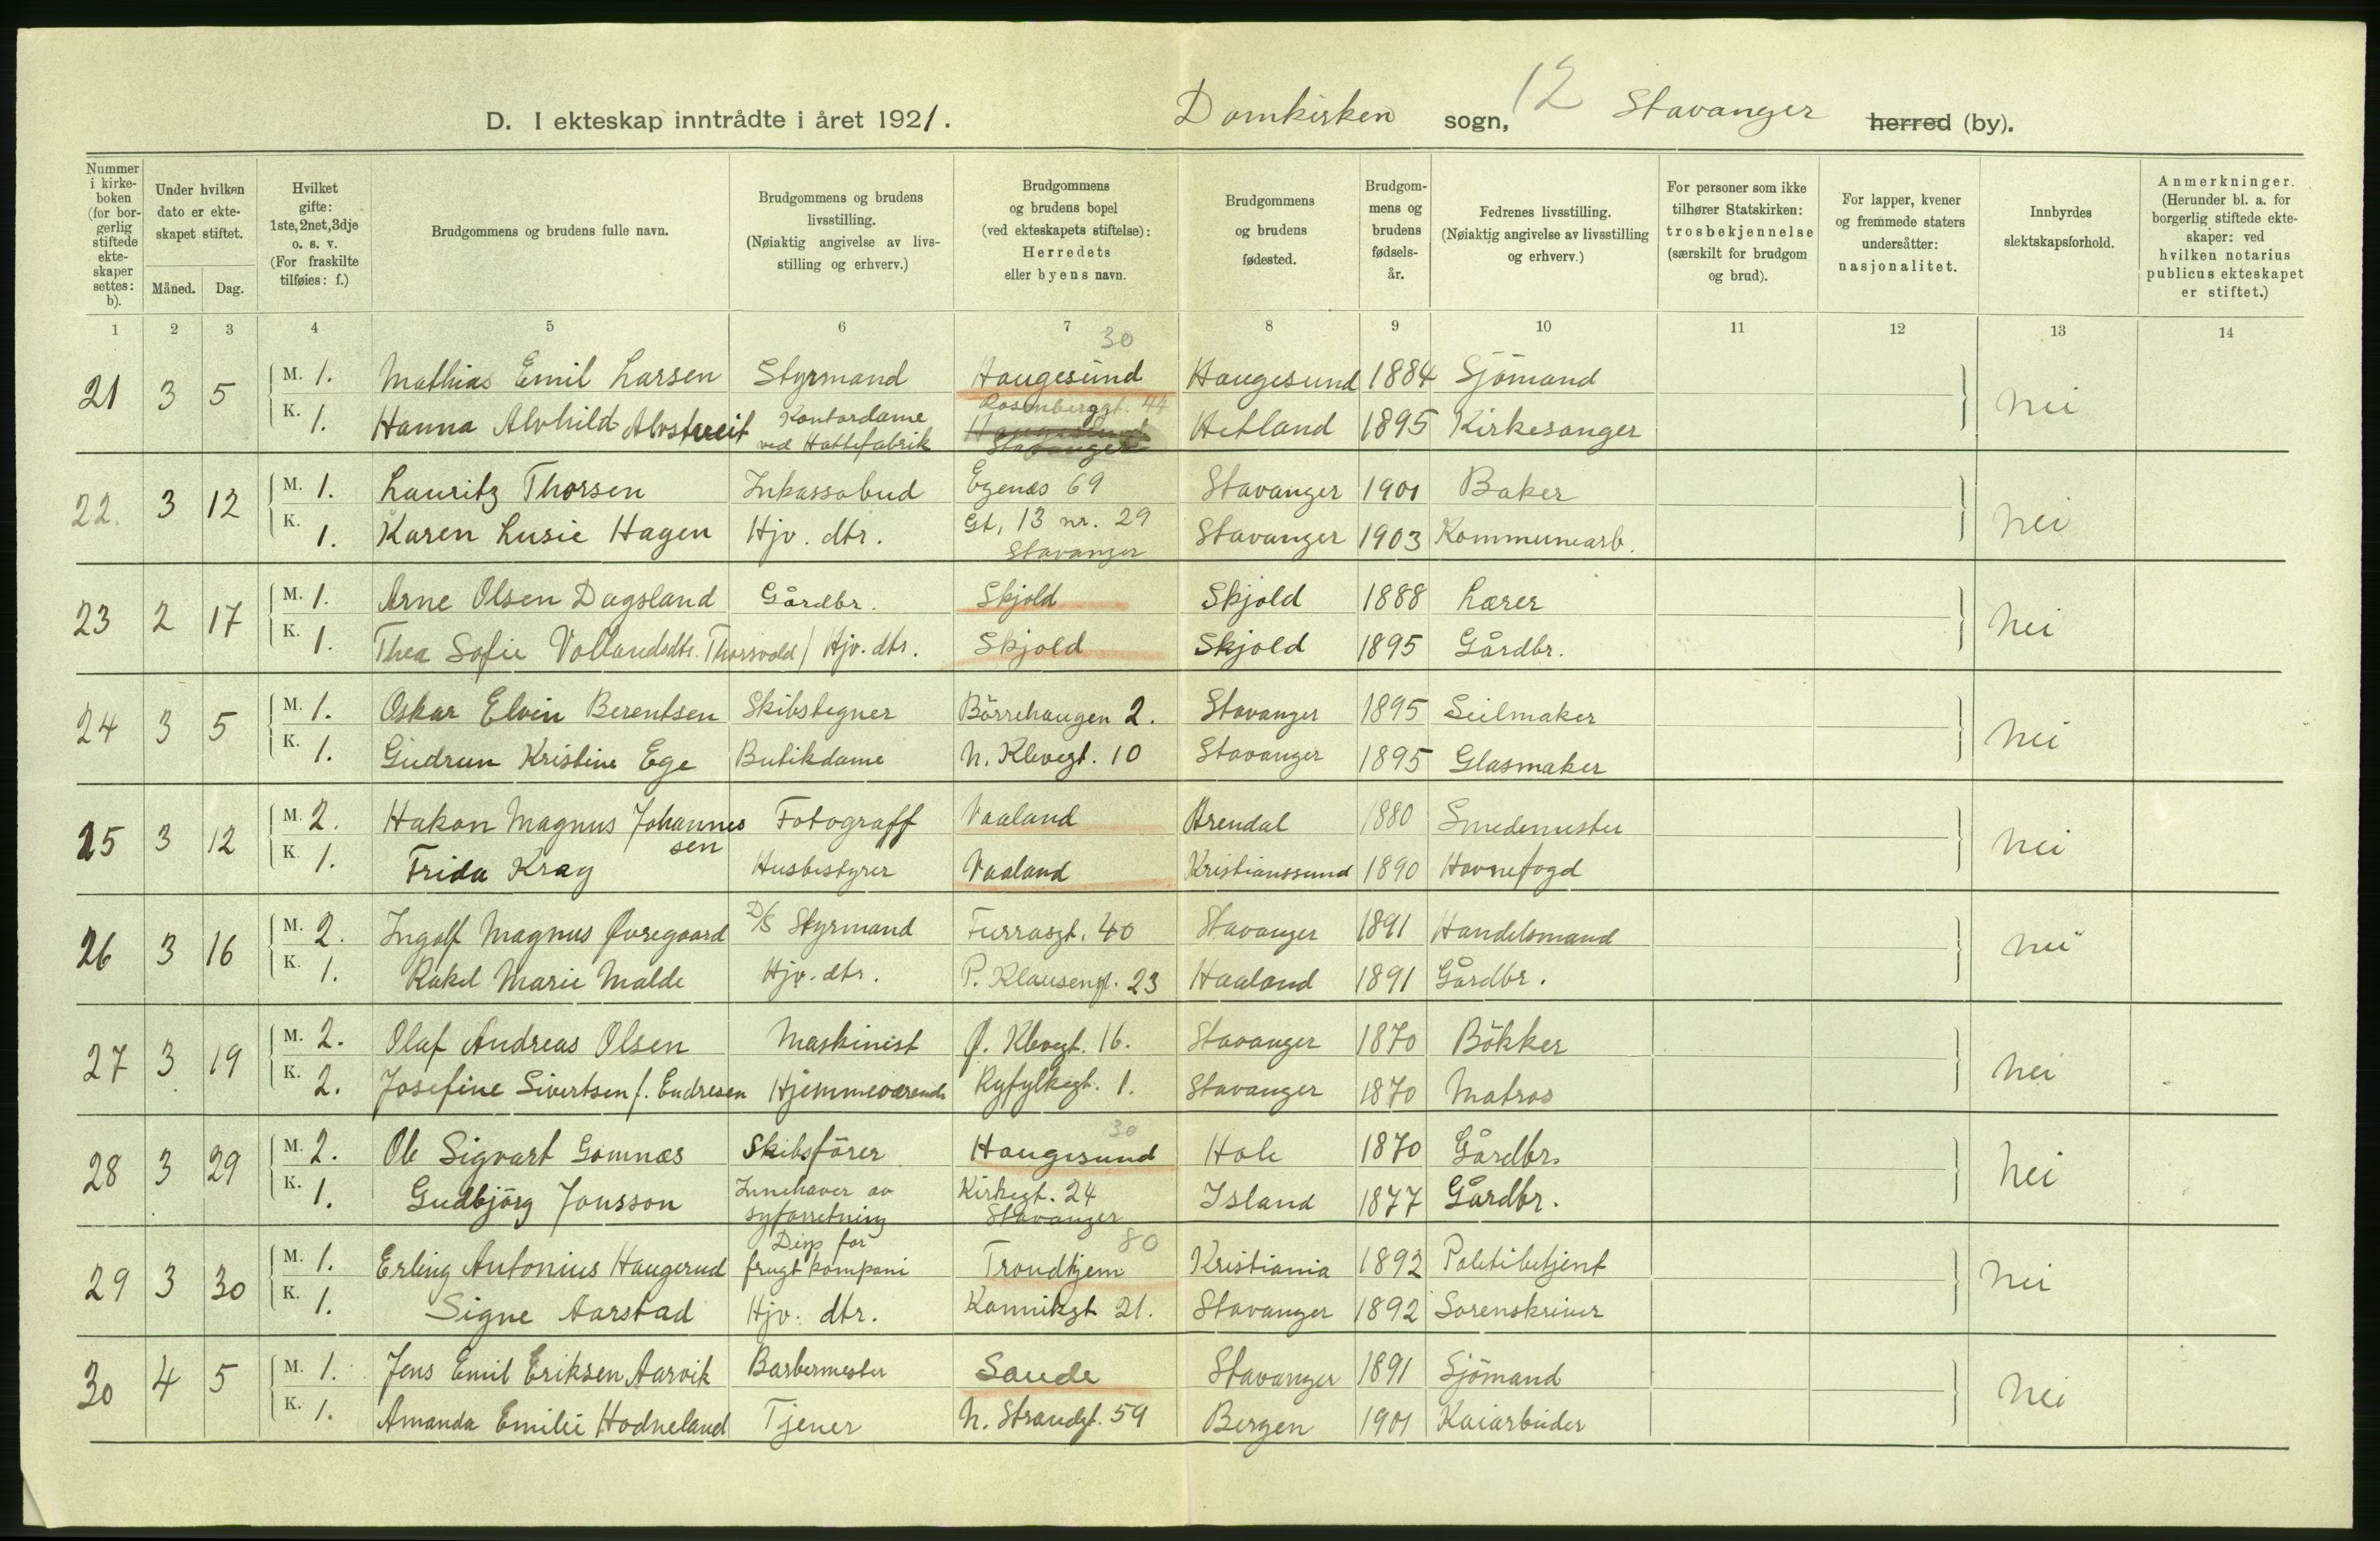 D. I ekteskap inntrådte i året 1921.
Domkirken sogn, 12 Stavanger herred (by).
Nummer i kirkeboken (for borgerlig stiftede ekteskaper settes: b).
Under hvilken dato er ekteskapet stiftet.
Måned. Dag.
Hvilket gifte: 1ste, 2net, 3dje o. s. v. (For fraskilte tilføies: f.)
Brudgommens og brudens fulle navn.
Brudgommens og brudens livsstilling. (Nøiaktig angivelse av livsstilling og erhverv.)
Brudgommens og brudens bopel (ved ekteskapets stiftelse): Herredets eller byens navn.
Brudgommens og brudens fødested.
Brudgommens og brudens fødselsår.
Fedrenes livsstilling. (Nøiaktig angivelse av livsstilling og erhverv.)
For personer som ikke tilhører Statskirken: trosbekjennelse (særskilt for brudgom og brud).
For lapper, kvener og fremmede staters undersåtter: nasjonalitet.
Innbyrdes slektskapsforhold.
Anmerkninger. (Herunder bl. a. for borgerlig stiftede ekteskaper: ved hvilken notarius publicus ekteskapet er stiftet.)
1 2 3 4 5 6 7 8 9 10 11 12 13 14
30
21 3 5 M. 1. Mathias Emil Larsen Styrmand Haugesund Haugesund 1884 Sjömand nei
K. 1. Hanna Alvhild Alvstveit Kontordame ved Hattefabrik Rosenberggt. 44 Haugesund Stavanger Hetland 1895 Kirkesanger
22. 3 12 M. 1. Lauritz Thorsen Inkassobud Egenæs 69 Stavanger 1901 Baker nei
K. 1. Karen Lusie Hagen Hjv. dtr. Gt, 13 nr. 29 Stavanger Stavanger 1903 Kommunearb.
23 2 17 M. 1. Arne Olsen Dagsland Gårdbr. Skjold Skjold 1888 Lærer nei
K. 1. Thea Sofie Vollandsdtr. Thorsvold / Hjv. dtr. Skjold Skjold 1895 Gårdbr.
24 3 5 M. 1. Oskar Elvin Berentsen Skibstegner Börrehaugen 2. Stavanger 1895 Seilmaker nei
K. 1. Gudrun Kristine Ege Butikdame N. Klevegt. 10 Stavanger 1895 Glasmaker
25 3 12 M. 2. Hakon Magnus Johannessen Fotograff Vaaland Arendal 1880 Smedemester nei
K. 1. Frida Krag Husbestyrer Vaaland Kristianssund 1890 Havnefogd
26 3 16 M. 2. Ingolf Magnus Øvregaard D/S Styrmand Furrasgt. 40 Stavanger 1891 Handelsmand nei
K. 1. Rakel Marie Malde Hjv. dtr. P. Klausengt. 23 Haaland 1891 Gårdbr.
27 3 19 M. 2. Olaf Andreas Olsen Maskinist Ø. Klevegt. 16. Stavanger 1870 Bökker nei
K. 2. Josefine Sivertsen f. Endresen Hjemmeværende Ryfylkegt. 1. Stavanger 1870 Matros
30
28 3 29 M. 2. Ole Sigvart Gomnæs Skibsförer Haugesund Hole 1870 Gårdbr. nei
K. 1. Gudbjörg Jonsson Innehaver av syforretning Kirkegt. 24 Stavanger Island 1877 Gårdbr.
80
29 3 30 M. 1. Erling Antonius Haugerud Disp for frugtkompani Trondhjem Kristiania 1892 Politibetjent nei
K. 1. Signe Aarstad Hjv. dtr. Kannikgt 21. Stavanger 1892 Sorenskriver
30 4 5 M. 1. Jens Emil Eriksen Aarvik Barbermester Saude Stavanger 1891 Sjömand nei
K. 1. Amanda Emilie Hodneland Tjener N. Strandgt. 59 Bergen 1901 Kaiarbeider